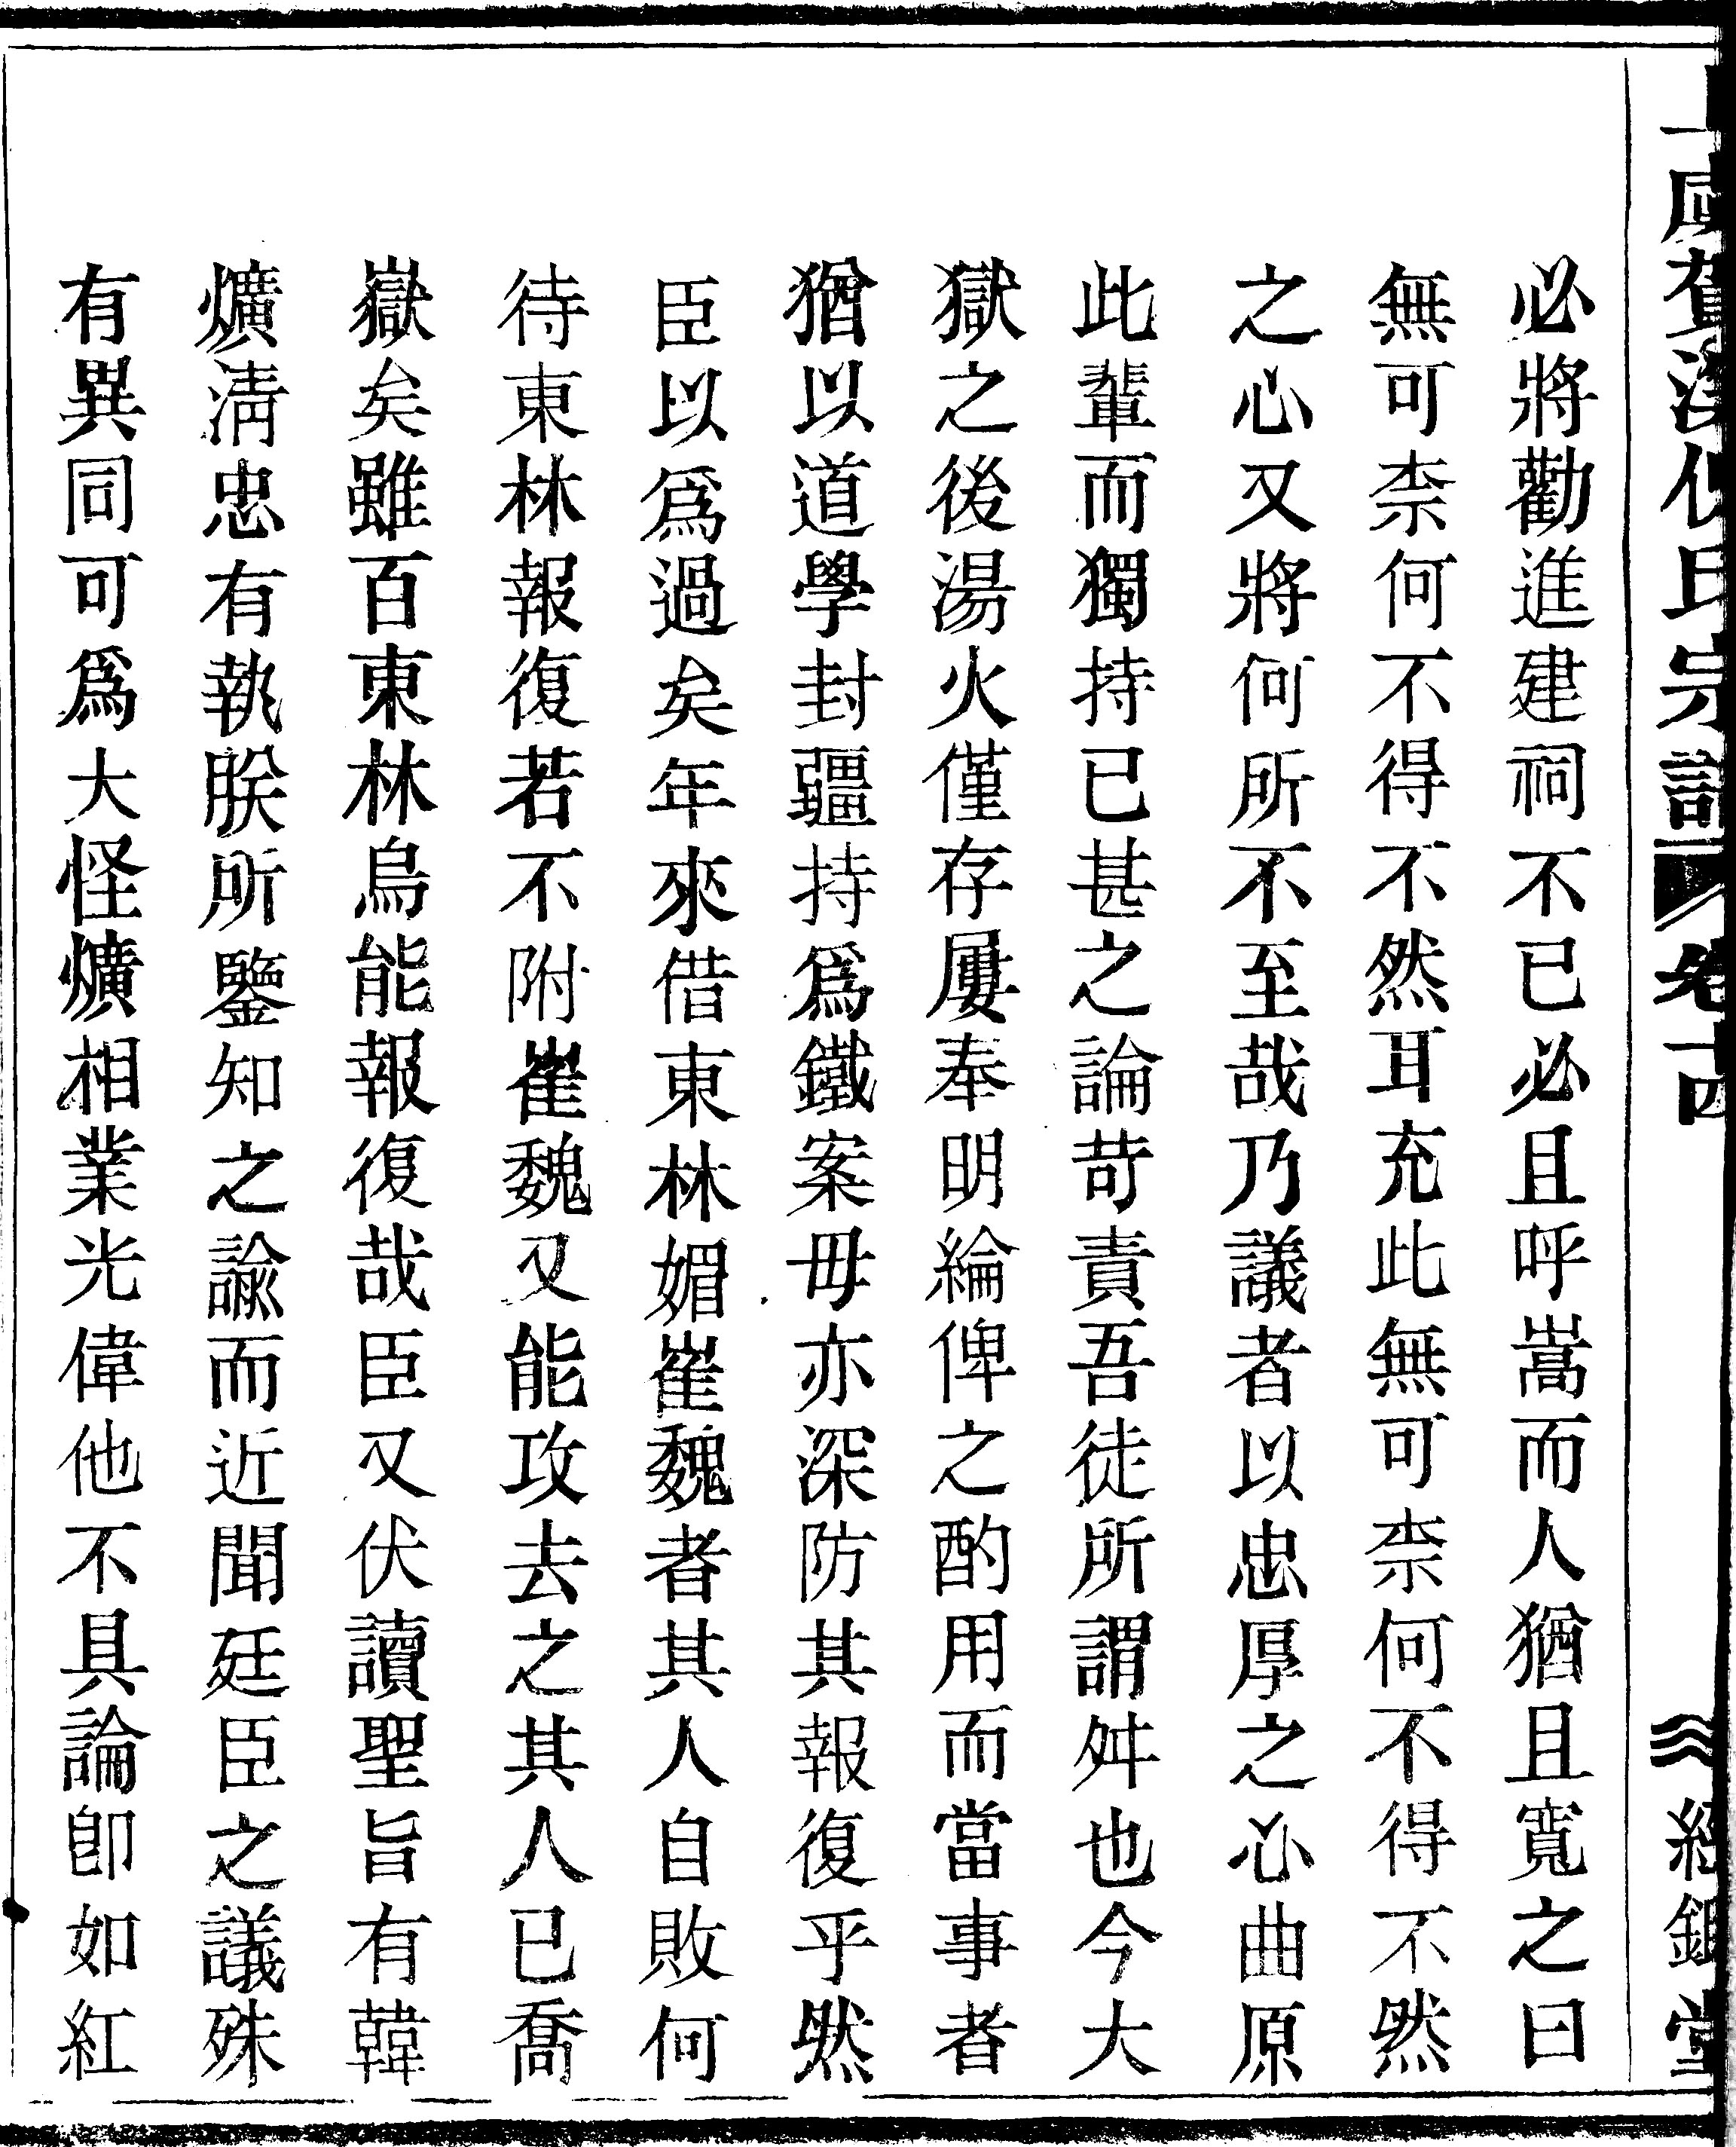 上虞賀溪倪氏宗譜 卷十四 三 經鉏堂
必將勸進建祠不已必且呼嵩而人猶且寬之曰
無可柰何不得不然耳充此無可柰何不得不然
之心又將何所不至哉乃議者以忠厚之心曲原
此輩而獨持已甚之論苛責吾徒所謂舛也今大
獄之後湯火僅存屢奉明綸俾之酌用而當事者
猶以道學封疆持爲鐵案毋亦深防其報復乎然
臣以爲過矣年來借東林媚崔魏者其人自敗何
待東林報復若不附崔魏又能攻去之其人已喬
嶽矣雖百東林烏能報復哉臣又伏讀聖旨有韓
爌淸忠有執朕所鑒知之諭而近聞廷臣之議殊
有異同可爲大怪爌相業光偉他不具論卽如紅